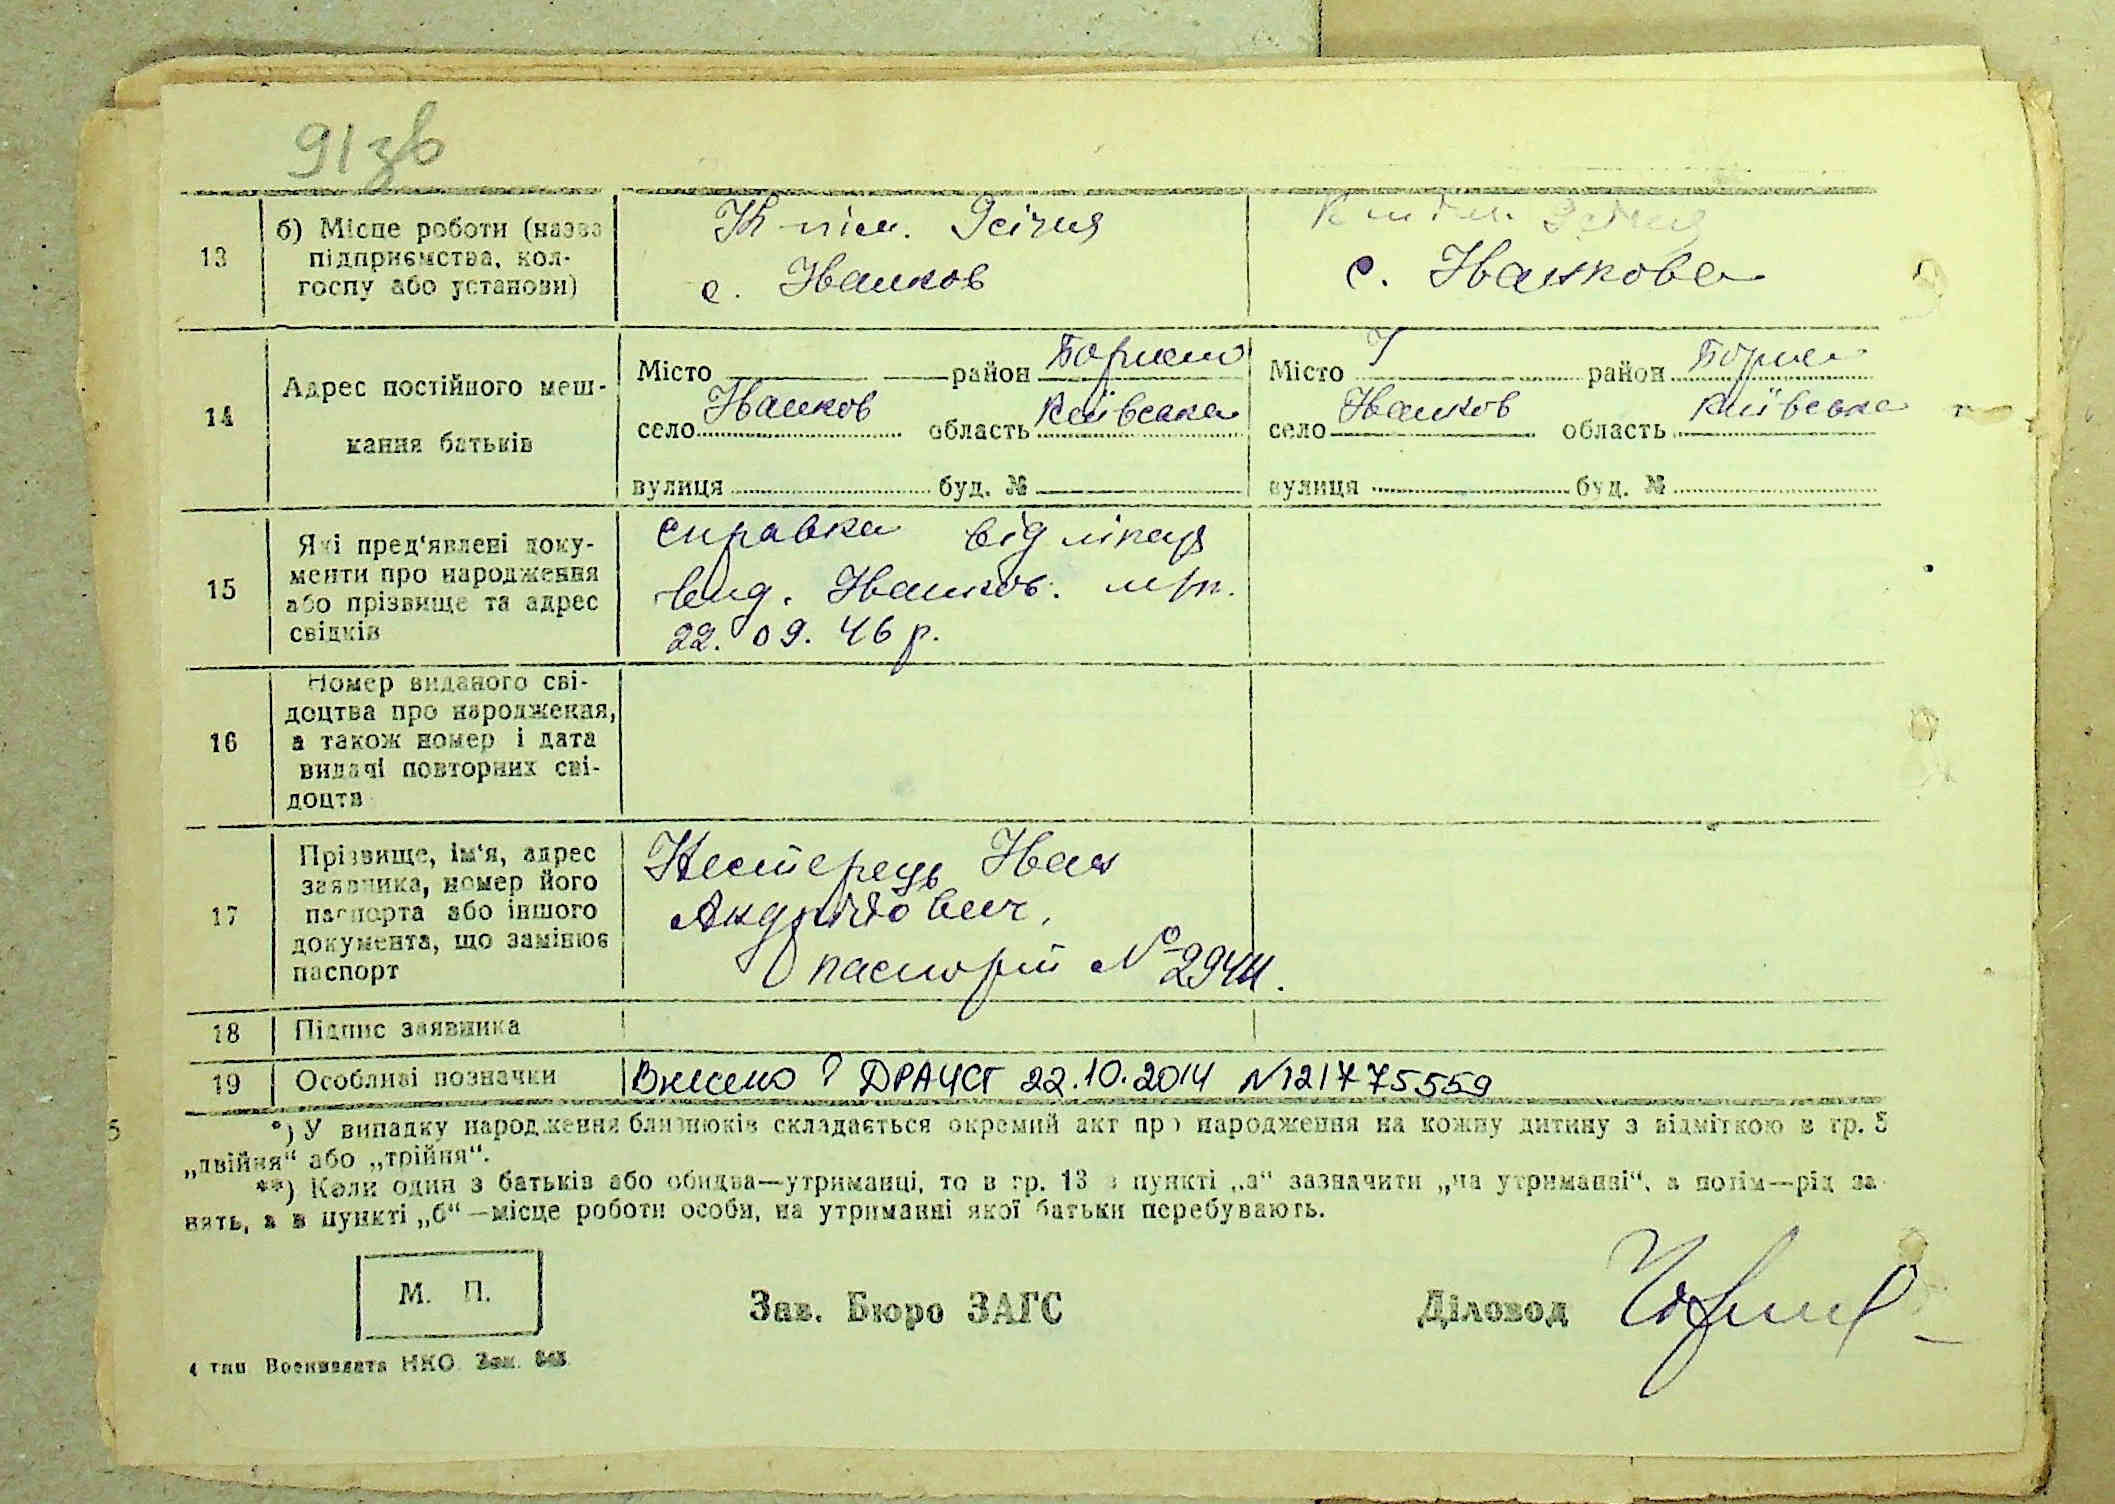 91зв
13
б) Місце роботи (назва
підприємства, кол-
госпу або установи)
с. Іванков
с. Іванкова
14
Адрес постійного меш-
кання батьків
Місто район Борисп
село Іванков область Київська
вулиця буд. №
Місто район Борисп
село Іванков область Київська
вулиця буд. №
15
Які пред'явлені доку-
менти про народження
або прізвище та адрес
свідків
справка від лікаря
вид. Іванков.
22. 09. 46 р.
16
Номер виданого сві-
доцтва про народження,
а також номер і дата
видачі повторних сві-
доцтв
17
Прізвище, ім'я, адрес
заявника, номер його
паспорта або іншого
документа, що замінює
паспорт
Нестерець Іван
Андрійович,
паспорт № 2944.
18
Підпис заявника
19
Особливі позначки
Внесено ДРАЦСГ 22.10.2014 N121775559
*) У випадку народження близнюків складається окремий акт про народження на кожну дитину з відміткою в гр. 5
„двійня“ або „трійня“.
**) Коли один з батьків або обидва—утриманці, то в гр. 13 в пункті „а“ зазначити „на утриманні“, а потім—рід за-
нять, а в пункті „б“—місце роботи особи, на утриманні якої батьки перебувають.
М. П.
Зав. Бюро ЗАГС
Діловод
4 тип Воениздата НКО. Зак.